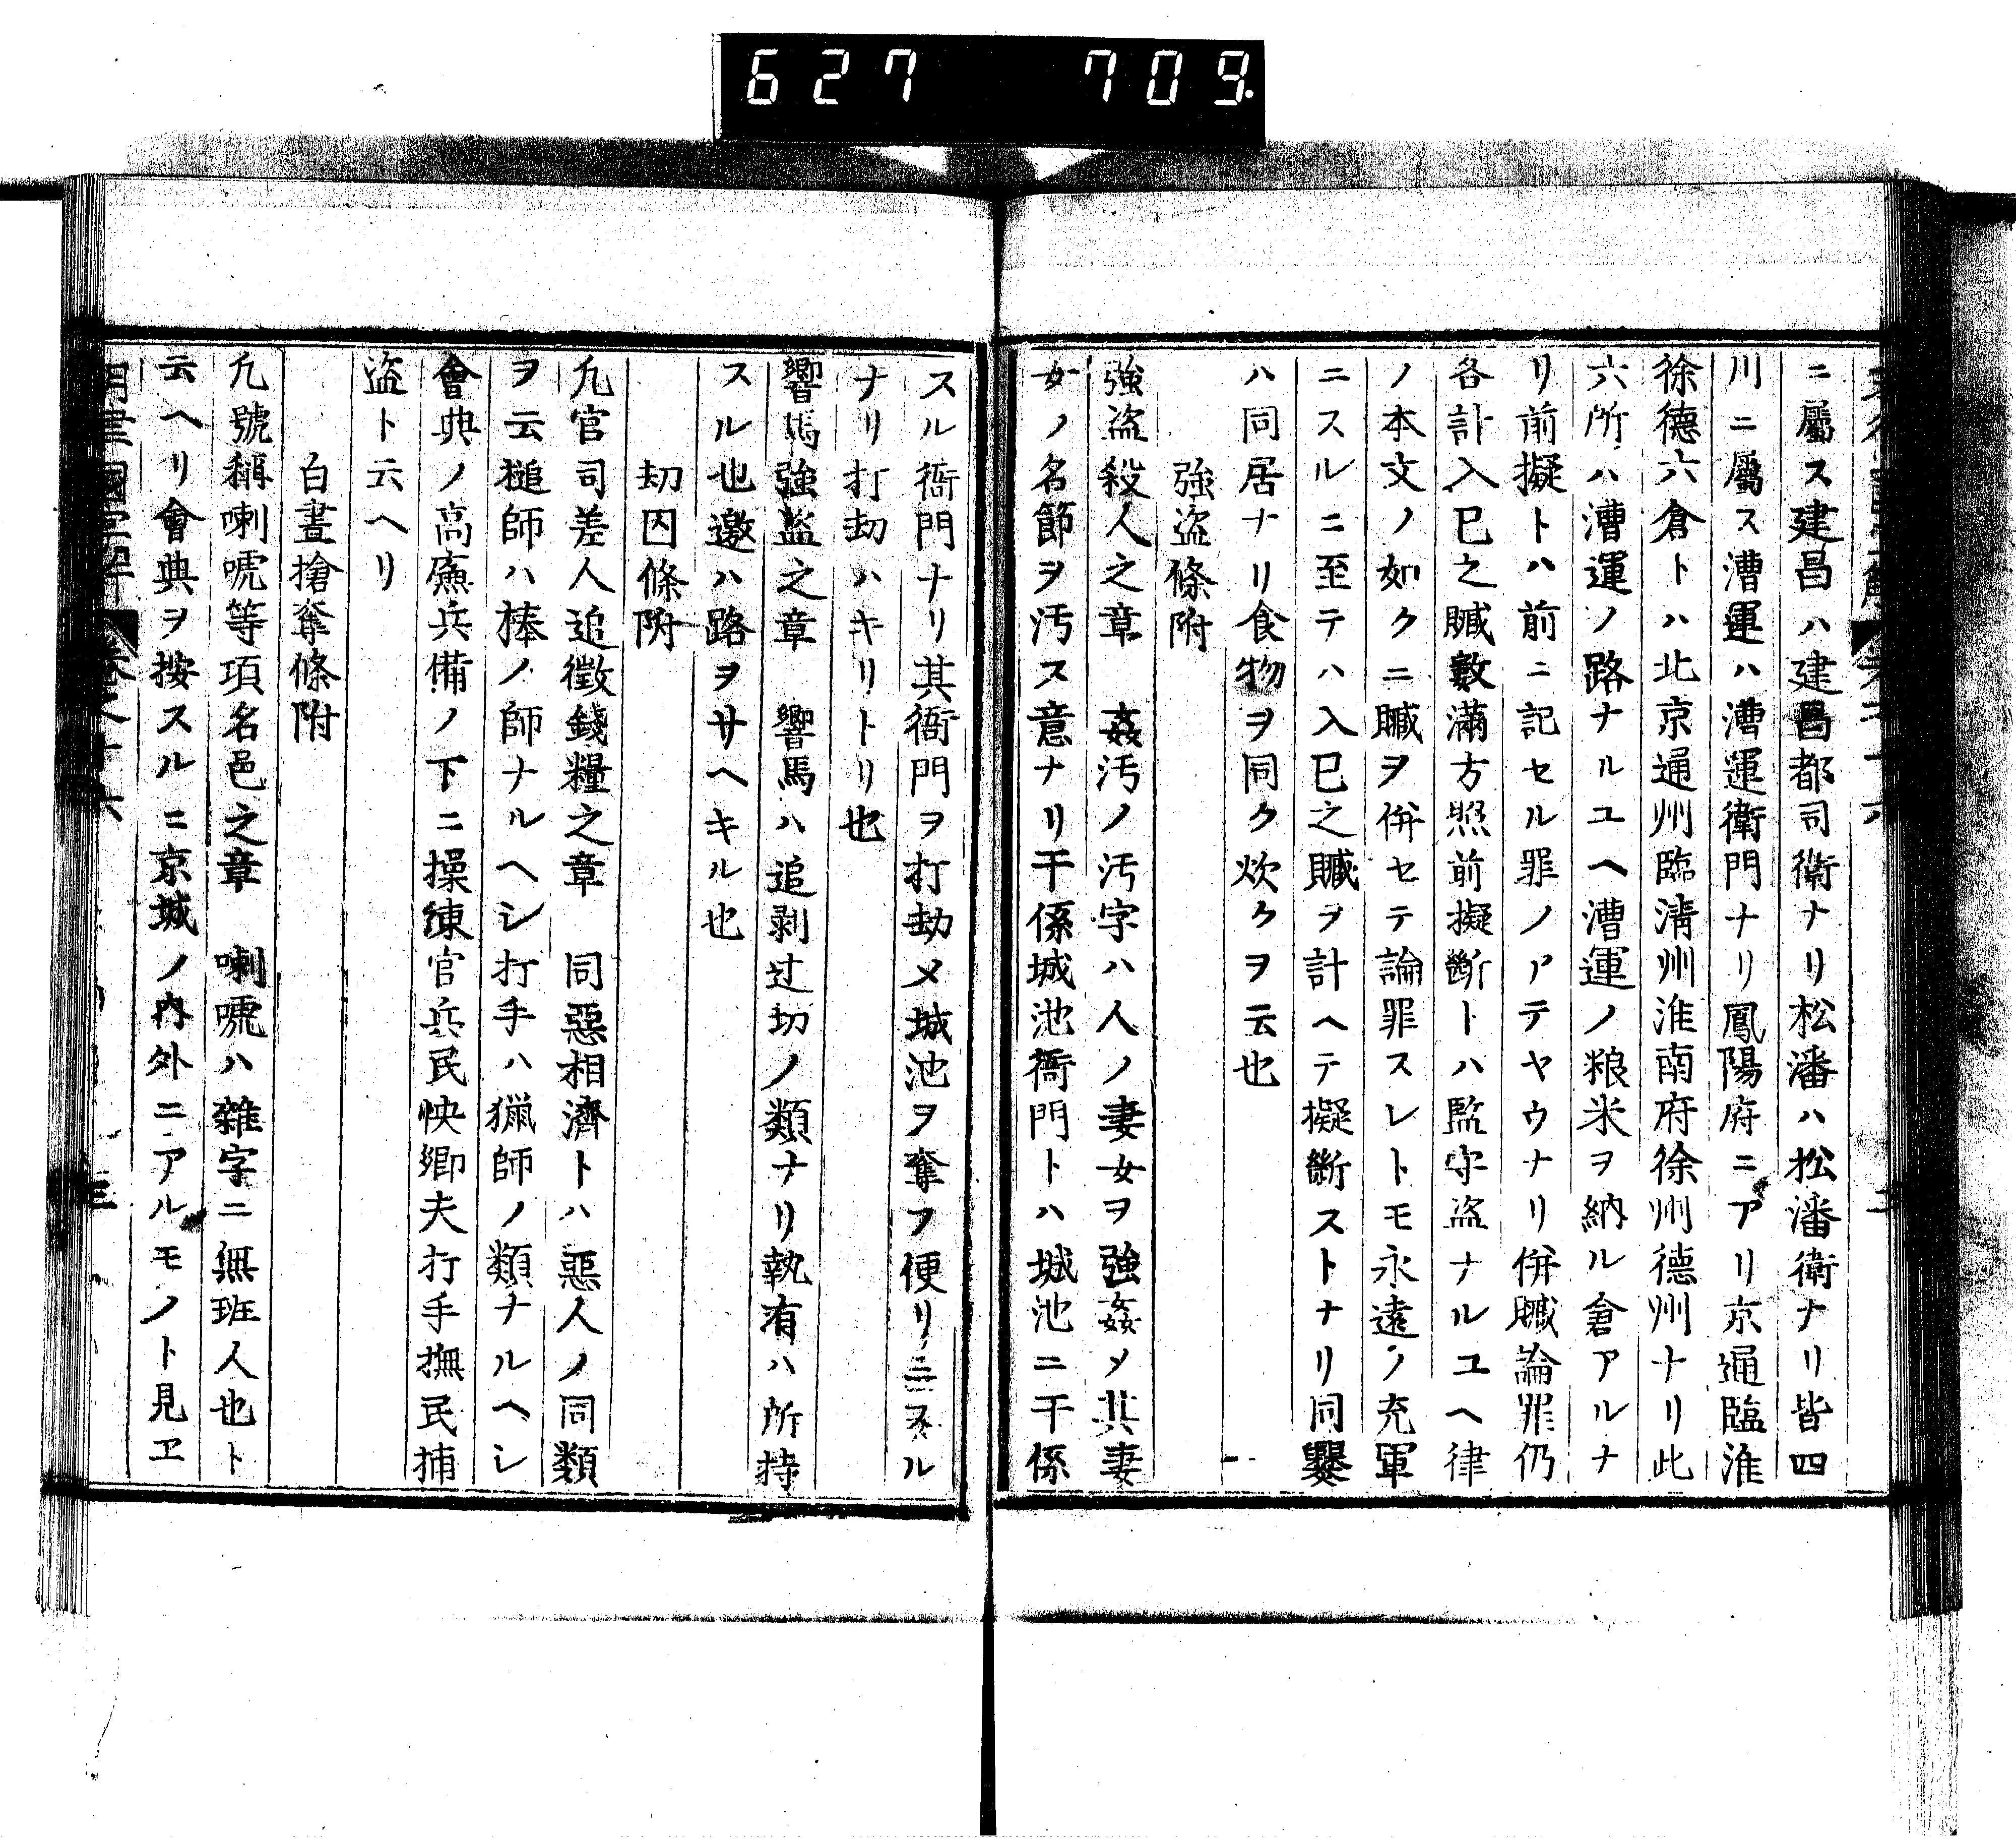 627 709
ニ屬ス建昌ハ建昌都司衛ナリ松潘ハ松潘衛ナリ皆四
川ニ屬ス漕運ハ漕運衛門ナリ鳳陽府ニアリ京通臨淮
徐德六倉トハ北京通州臨淸州淮南府徐州德州ナリ此
六所ハ漕運ノ路ナルユヘ漕運ノ粮米ヲ納ル倉アルナ
リ前擬トハ前ニ記セル罪ノアテヤウナリ併贓論罪仍
各計入已之贓數滿方照前擬斷トハ監守盗ナルユヘ律
ノ本文ノ如クニ贓ヲ併セテ論罪スレトモ永遠ノ充軍
ニスルニ至テハ入已之贓ヲ計ヘテ擬斷ストナリ同爨
ハ同居ナリ食物ヲ同ク炊クヲ云也
強盗條附
強盗殺人之章　姦汚ノ汚字ハ人ノ妻女ヲ強姦メ其妻
女ノ名節ヲ汚ス意ナリ干係城池衙門トハ城池ニ干係
スル衙門ナリ其衙門ヲ打劫メ城池ヲ奪フ便リニスル
ナリ打劫ハキリトリ也
響馬強盗之章　響馬ハ追剥辻切ノ類ナリ執有ハ所持
スル也邀ハ路ヲサヘキル也
劫囚條附
凡官司差人追徵錢糧之章　同惡相濟トハ惡人ノ同類
ヲ云槌師ハ棒ノ師ナルヘシ打手ハ獵師ノ類ナルヘシ
會典ノ高廉兵備ノ下ニ操練官兵民快鄉夫打手撫民捕
盗ト云ヘリ
白晝搶奪條附
凡號稱喇唬等項名邑之章　喇唬ハ雜字ニ無班人也ト
云ヘリ會典ヲ按スルニ京城ノ内外ニアルモノト見ヱ